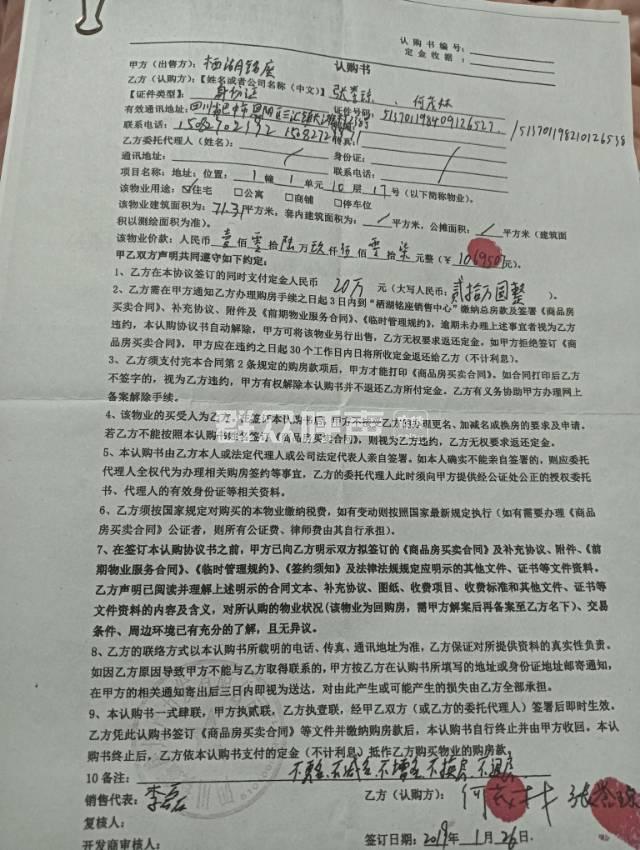 认购书编号：
定金收据：
认购书
甲方（出售方）：栖湖铭座
乙方（认购方）：【姓名或者公司名称（中文）】 、何茂林
【证件类型】：身份证 证件号码：
有效通讯地址：四川省巴中市恩阳区三汇镇
联系电话：
乙方委托代理人（姓名）： 身份证：
通讯地址： 联系电话：
项目名称：地址：位置：1幢1单元10层17号（以下简称物业）。
该物业用途：☑住宅 □公寓 □商铺 □停车位
该物业建筑面积为：71.31平方米，套内建筑面积为：/平方米，公摊面积：/平方米（建筑面
积以测绘面积为准）。
该物业价款：人民币壹佰零拾陆万玖仟 佰零拾柒元整（¥ 元）。
甲乙双方声明共同遵守如下约定：
1、乙方在本协议签订的同时支付定金人民币 20万 元（大写人民币：贰拾万圆整）。
2、乙方需在甲方通知乙方办理购房手续之日起3日内到“栖湖铭座销售中心”缴纳总房款及签署《商品房
买卖合同》、补充协议、附件及《前期物业服务合同》、《临时管理规约》，逾期未办理上述事宜者视为乙方
违约，本认购协议书自动解除，甲方可将该物业另行出售，乙方无权要求返还定金。如甲方拒绝签订《商
品房买卖合同》，甲方应在违约之日起30个工作日内日将所收定金返还给乙方（不计利息）。
3、乙方须支付完本合同第2条规定的购房款项后，甲方才能打印《商品房买卖合同》。如合同打印后乙方
不签字的，视为乙方违约，甲方有权解除本认购书并不退还乙方所付定金。乙方有义务协助甲方办理网上
备案解除手续。
4、该物业的买受人为乙方，在签订本认购书后，甲方不接受乙方的办理更名、加减名或换房的要求及申请。
若乙方不能按照本认购书的约定签订《商品房买卖合同》，则视为乙方违约，乙方无权要求返还定金。
5、本认购书由乙方本人或法定代理人或公司法定代表人亲自签署。如本人确实不能亲自签署的，则应委托
代理人全权代为办理相关购房签约等事宜，乙方的委托代理人此时须向甲方提供经公证处公正的授权委托
书、代理人的有效身份证等相关资料。
6、乙方须按国家规定对购买的本物业缴纳税费，如有变动则按照国家最新规定执行（如有需要办理《商品
房买卖合同》公证者，则所有公证费、律师费由其自行承担）。
7、在签订本认购协议书之前，甲方已向乙方明示双方拟签订的《商品房买卖合同》及补充协议、附件、《前
期物业服务合同》、《临时管理规约》、《签约须知》及法律法规规定应明示的其他文件、证书等文件资料。
乙方声明已阅读并理解上述明示的合同文本、补充协议、图纸、收费项目、收费标准和其他文件、证书等
文件资料的内容及含义，对所认购的物业状况（该物业为回购房，需甲方解案后再备案至乙方名下）、交易
条件、周边环境已有充分的了解，且无异议。
8、乙方的联络方式以本认购书所载明的电话、传真、通讯地址为准，乙方保证对所提供资料的真实性负责。
如因乙方原因导致甲方不能与乙方取得联系的，甲方按乙方在认购书所填写的地址或身份证地址邮寄通知，
在甲方的相关通知寄出后三日内即视为送达，对由此产生或可能产生的损失由乙方全部承担。
9、本认购书一式肆联，甲方执贰联，乙方执壹联，经甲乙双方（或乙方的委托代理人）签署后即时生效。
乙方凭此认购书签订《商品房买卖合同》等文件并缴纳购房款后，本认购书自行终止并由甲方收回。本认
购书终止后，乙方依本认购书支付的定金（不计利息）抵作乙方购买物业的购房款。
10备注：不更名、不减名、不增名、不换房、不退房
销售代表：李 乙方（认购方）：何茂林
复核人：
开发商审核人： 签订日期：2019年1月26日.